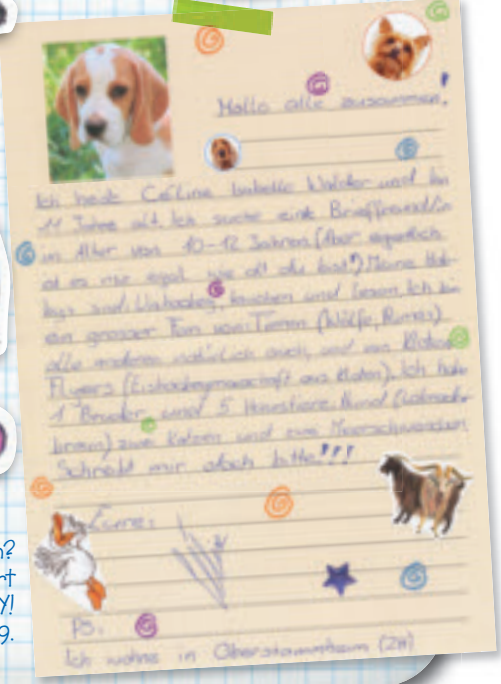 Hallo alle zusammen!
Ich heiße Céline Isabelle Walder und bin
11 Jahre alt. Ich suche eine Brieffreund/in
im Alter von 10-12 Jahren (Aber eigentlich
ist es mir egal wie alt du bist!) Meine Hob-
bys sind Unihockey, und lesen. Ich bin
ein grosser Fan von: Tieren (Wölfe, Pumas)
alle anderen natürlich auch, und von Kloten
Flyers (Eishockeymannschaft aus Kloten). Ich habe
1 Bruder und 5 Haustiere. Hund (Labrador
braun) zwei Katzen und zwei Meerschweinchen
Schreibt mir doch bitte!!!
Eure:
PS.
Ich wohne in Oberstammheim (ZH)
n?
rt
Y!
9.